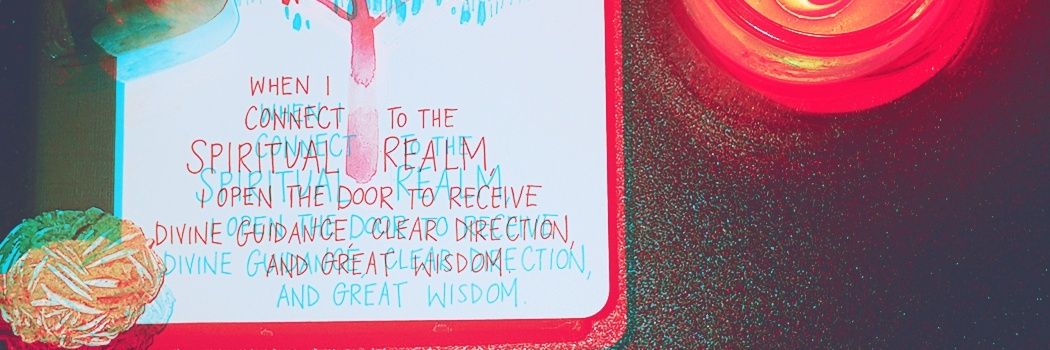 WHEN I
CONNECT TO THE
SPIRITUAL REALM,
I OPEN THE DOOR TO RECEIVE
DIVINE GUIDANCE, CLEAR DIRECTION,
AND GREAT WISDOM.